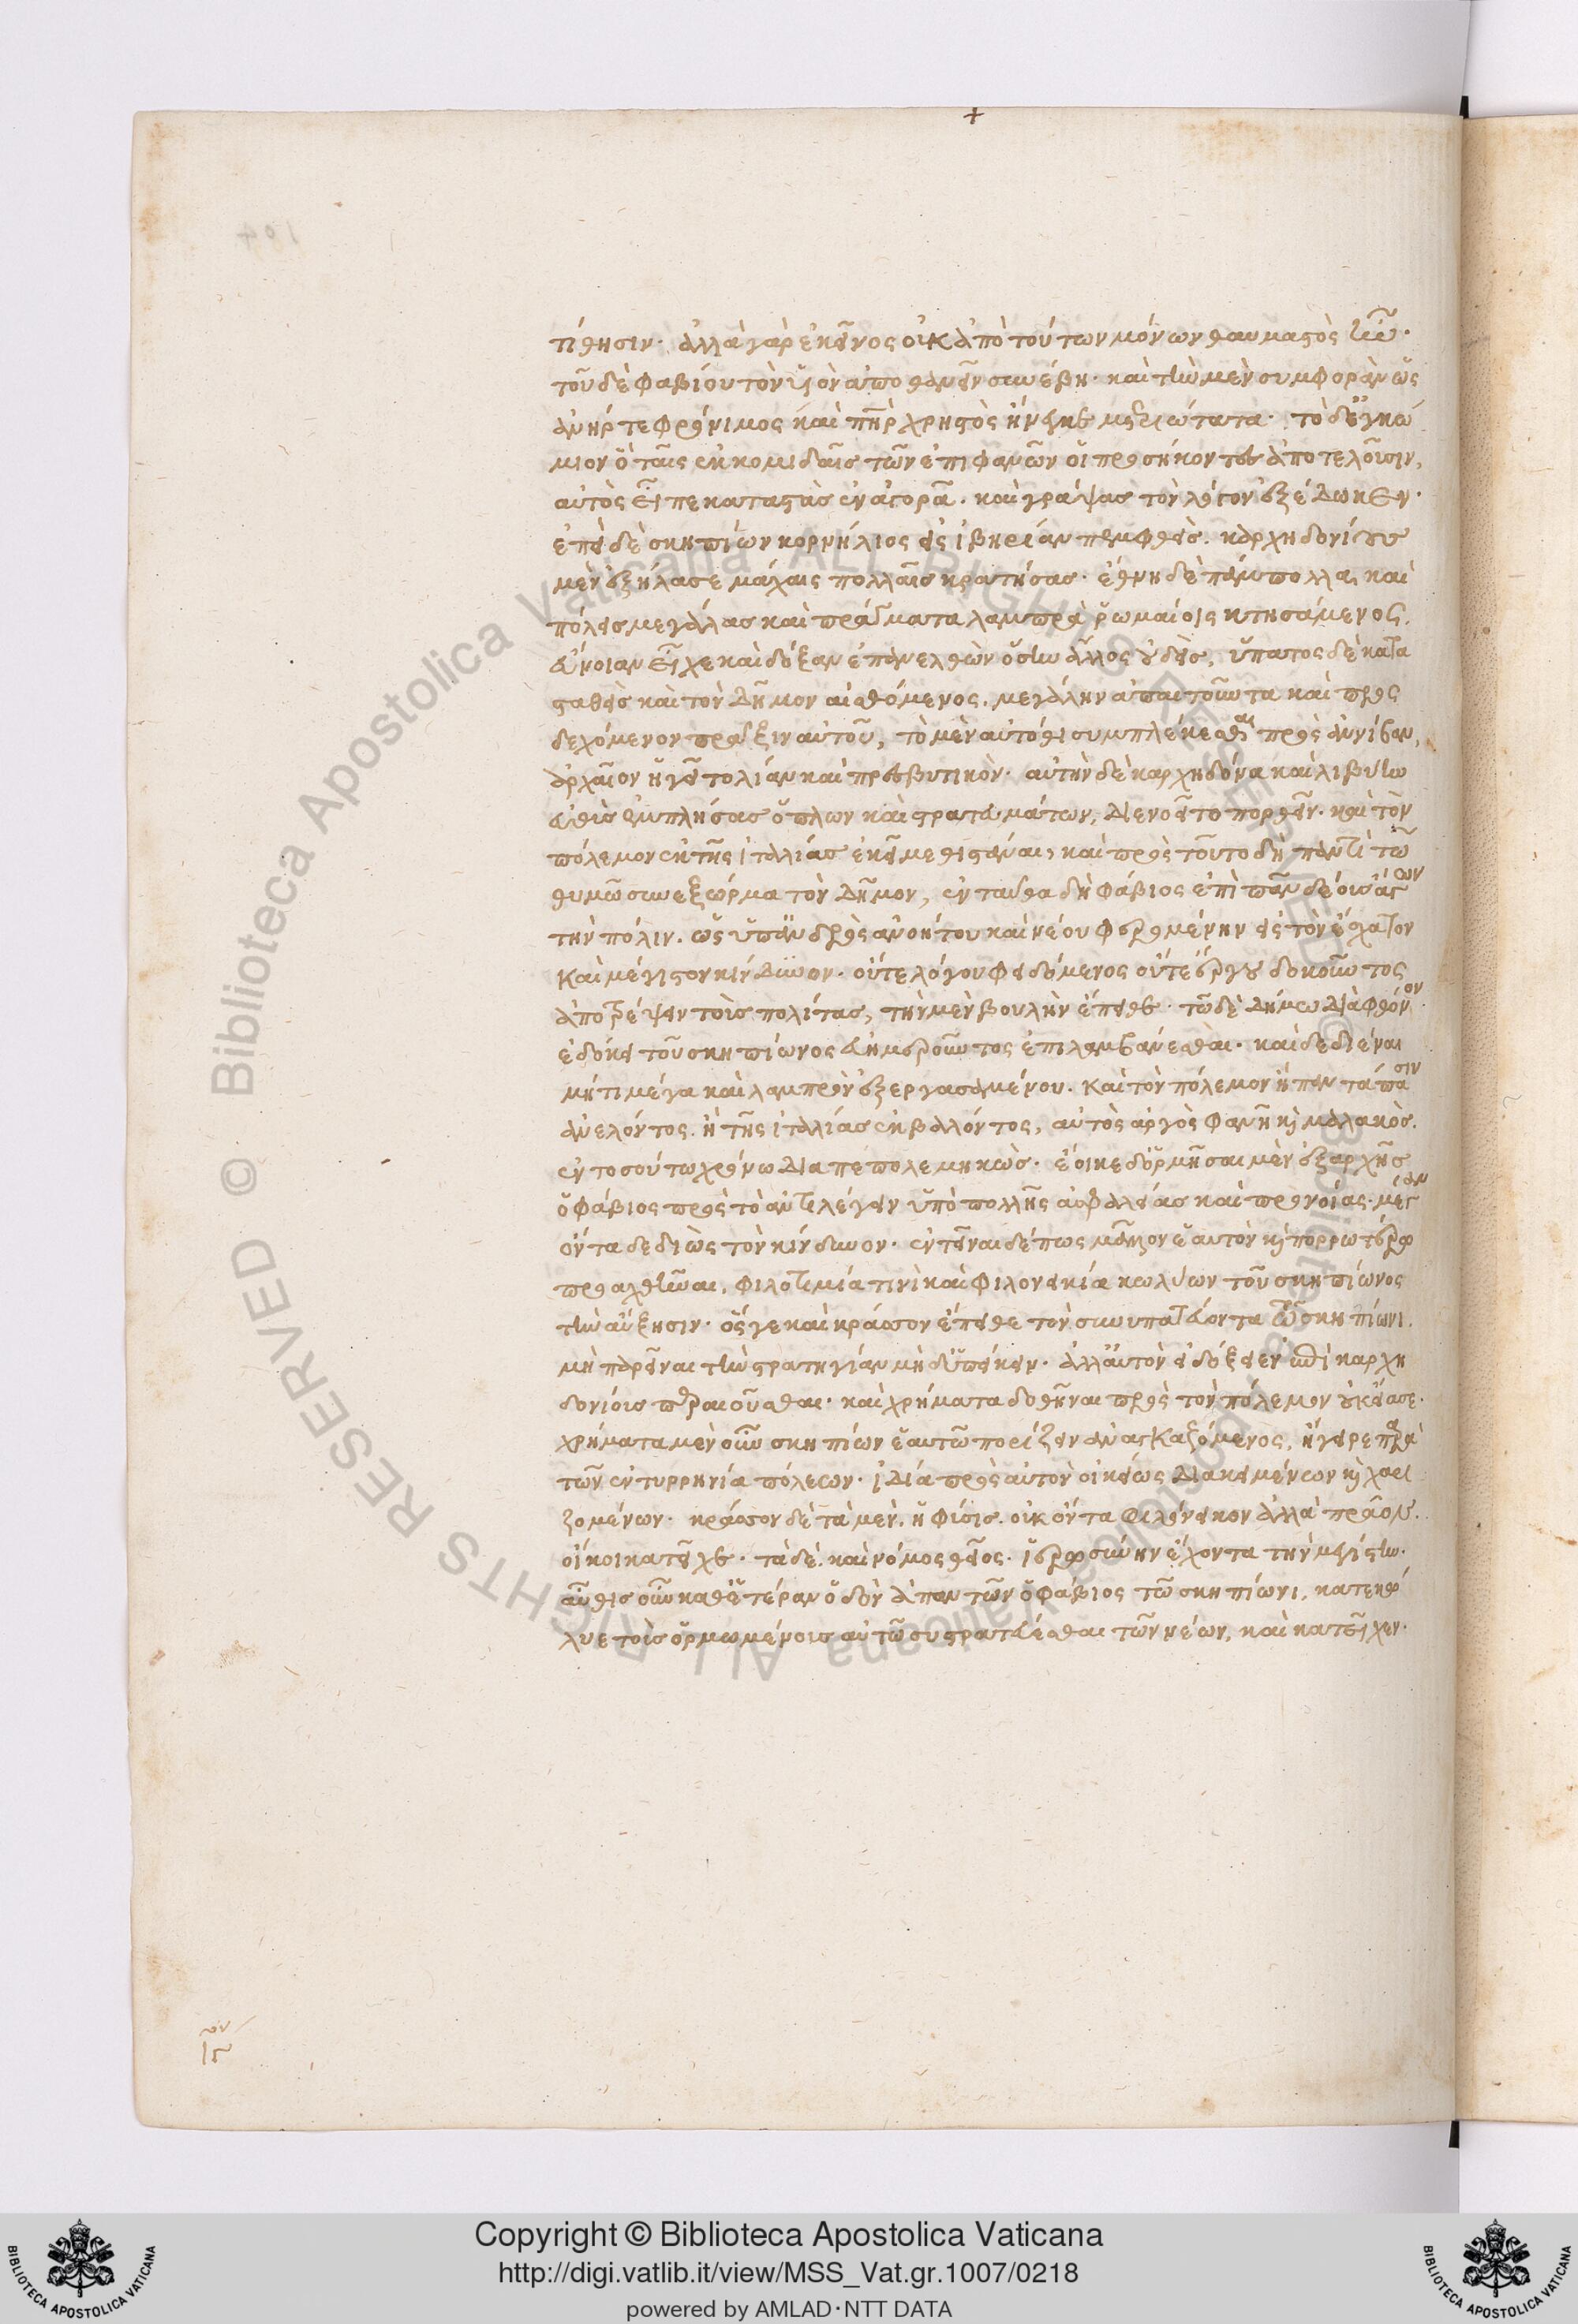 τίθησιν. ἀλλὰ γὰρ ἐκεῖνος οὐκ ἀπὸ τούτων μόνων θαυμαστὸς ἦν.
τοῦ δὲ φαβίου τὸν υἱὸν ἀποθανεῖν συνέβη. καὶ τὴν μὲν συμφορὰν ὡς
ἀνήρ τε φρόνιμος καὶ πηρ χρηστὸς ἤνεγκε μετριώτατα. τὸ δ' ἐγκώ
μιον ὃ ταῖς ἐκκομιδαῖς τῶν ἐπιφανῶν οἱ προσήκοντες ἀποτελοῦσιν,
αὐτὸς εἶπε καταστὰς ἐν ἀγορᾶ. καὶ γράψας τὸν λόγον ἐξέδωκεν.
ἐπεὶ δὲ σκηπίων κορνήλιος εἰς ἰβηρίαν πεμφθεὶς. καρχηδονίους
μὲν ἐξήλασε μάχαις πολλαῖς κρατήσας. ἔθνη δὲ πάμπολλα, καὶ
πόλεις μεγάλας καὶ πράγματα λαμπρὰ ῥωμαίοις κτησάμενος,
εὔνοιαν εἶχε καὶ δόξαν ἐπανελθὼν ὅσην ἄλλος οὐδεὶς, ὕπατος δὲ κατα
σταθεὶς καὶ τὸν δῆμον αἰσθόμενος. μεγάλην ἀπαιτοῦντα καὶ προς
δεχόμενον πρᾶξιν αὐτοῦ, τὸ μὲν αὐτόθι συμπλέκεσθαι πρὸς ἀννίβαν,
ἀρχαῖον ἡγεῖτο λίαν καὶ πρεσβυτικὸν. αὐτὴν δὲ καρχηδόνα καὶ λιβύην
εὐθὺς ἐμπλήσας ὅπλων καὶ στρατευμάτων, διενοεῖτο πορθεῖν. καὶ τὸν
πόλεμον ἐκ τῆς ἰταλίας ἐκεῖ μεθιστάναι, καὶ πρὸς τοῦτο δὴ παντὶ τῶ
θυμῶ συνεξώρμα τὸν δῆμον, ἐνταῦθα δὴ φάβιος ἐπὶ πᾶν δέους ἄγων
τὴν πόλιν. ὡς ὑπ' ἀνδρὸς ἀνοήτου καὶ νέου φερομένην εἰς τὸν ἔσχατον
καὶ μέγιστον κίνδυνον. οὔτε λόγου φειδόμενος οὔτε ἔργου δοκοῦντος
ἀποτρέψειν τοὺς πολίτας, τὴν μὲν βουλὴν ἔπεισε. τῶ δὲ δήμω διὰ φθόνον
ἐδόκει τοῦ σκηπίωνος εὐημεροῦντος ἐπιλαμβάνεσθαι. καὶ δεδιέναι
μή τι μέγα καὶ λαμπρὸν ἐξεργασαμένου. καὶ τὸν πόλεμον ἢ παντάπασιν
ἀνελόντος. ἢ τῆς ἰταλίας ἐκβαλόντος, αὐτὸς ἀργὸς φανῆ κ̀ μαλακὸς.
ἐν τοσούτω χρόνω διαπεπολεμηκὼς. ἔοικε δ' ὁρμῆσαι μὲν ἐξαρχῆς
ὁ φάβιος πρὸς τὸ ἀντιλέγειν ὑπὸ πολλῆς ἀσφαλείας καὶ προνοίας. μέγαν
ὄντα δεδιὼς τὸν κίνδυνον. ἐντεῖναι δέ πως μᾶλλον ἑαυτὸν κ̀ πορρωτέρω
προαχθῆναι, φιλοτιμία τινὶ καὶ φιλονεικία κωλύων τοῦ σκηπίωνος
τὴν αὔξησιν. ὅς γε καὶ κράσσον ἔπειθε τὸν συνυπατεύοντα τῶ σκηπίωνι.
μὴ παρεῖναι τὴν στρατηγίαν μὴ δ' ὑπείκειν. ἀλλ' αὐτὸν εἰ δόξειεν ἐπὶ καρχη
δονίους περαιοῦσθαι. καὶ χρήματα δοθῆναι πρὸς τὸν πόλεμον οὐκ εἴασε.
χρήματα μὲν οὖν σκηπίων ἑαυτῶ πορίζειν ἀναγκαζόμενος, ἤγειρε παρὰ
τῶν ἐν τυρρηνία πόλεων. ἰδία πρὸς αὐτὸν οἰκείως διακειμένων κ̀ χαρι
ζομένων. κράσσον δὲ τὰ μὲν. ἡ φύσις. οὐκ ὄντα φιλόνεικον ἀλλὰ πρᾶον.
οἴκοι κατεῖχε. τὰ δὲ. καὶ νόμος θεῖος. ἱερωσύνην ἔχοντα τὴν μεγίστην.
αὖθις οὖν καθ' ἑτέραν ὁδὸν ἀπαντῶν ὁ φάβιος τῶ σκηπίωνι, κατεκώ
λυε τοὺς ὁρμωμένους αὐτῶ συστρατεύεσθαι τῶν νέων, καὶ κατεῖχεν.
Copyright © Biblioteca Apostolica Vaticana
http://digi.vatlib.it/view/MSS_Vat.gr.1007/0218
powered by AMLAD·NTT DATA